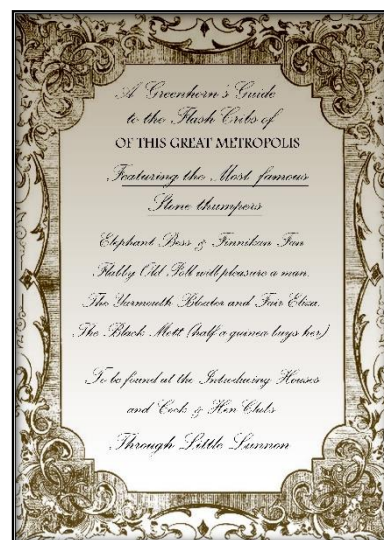 A Greenhorn's Guide
to the Flash Cribs of
OF THIS GREAT METROPOLIS
Featuring the Most famous
Stone thumpers
Elephant Bess & Finnikan Fan
Flabby Old Poll will pleasure a man.
The Yarmouth Bloater and Fair Eliza.
The Black Mott (half a guinea buys her)
To be found at the Introducing Houses
and Cock & Hen Clubs
Through Little Lunnon